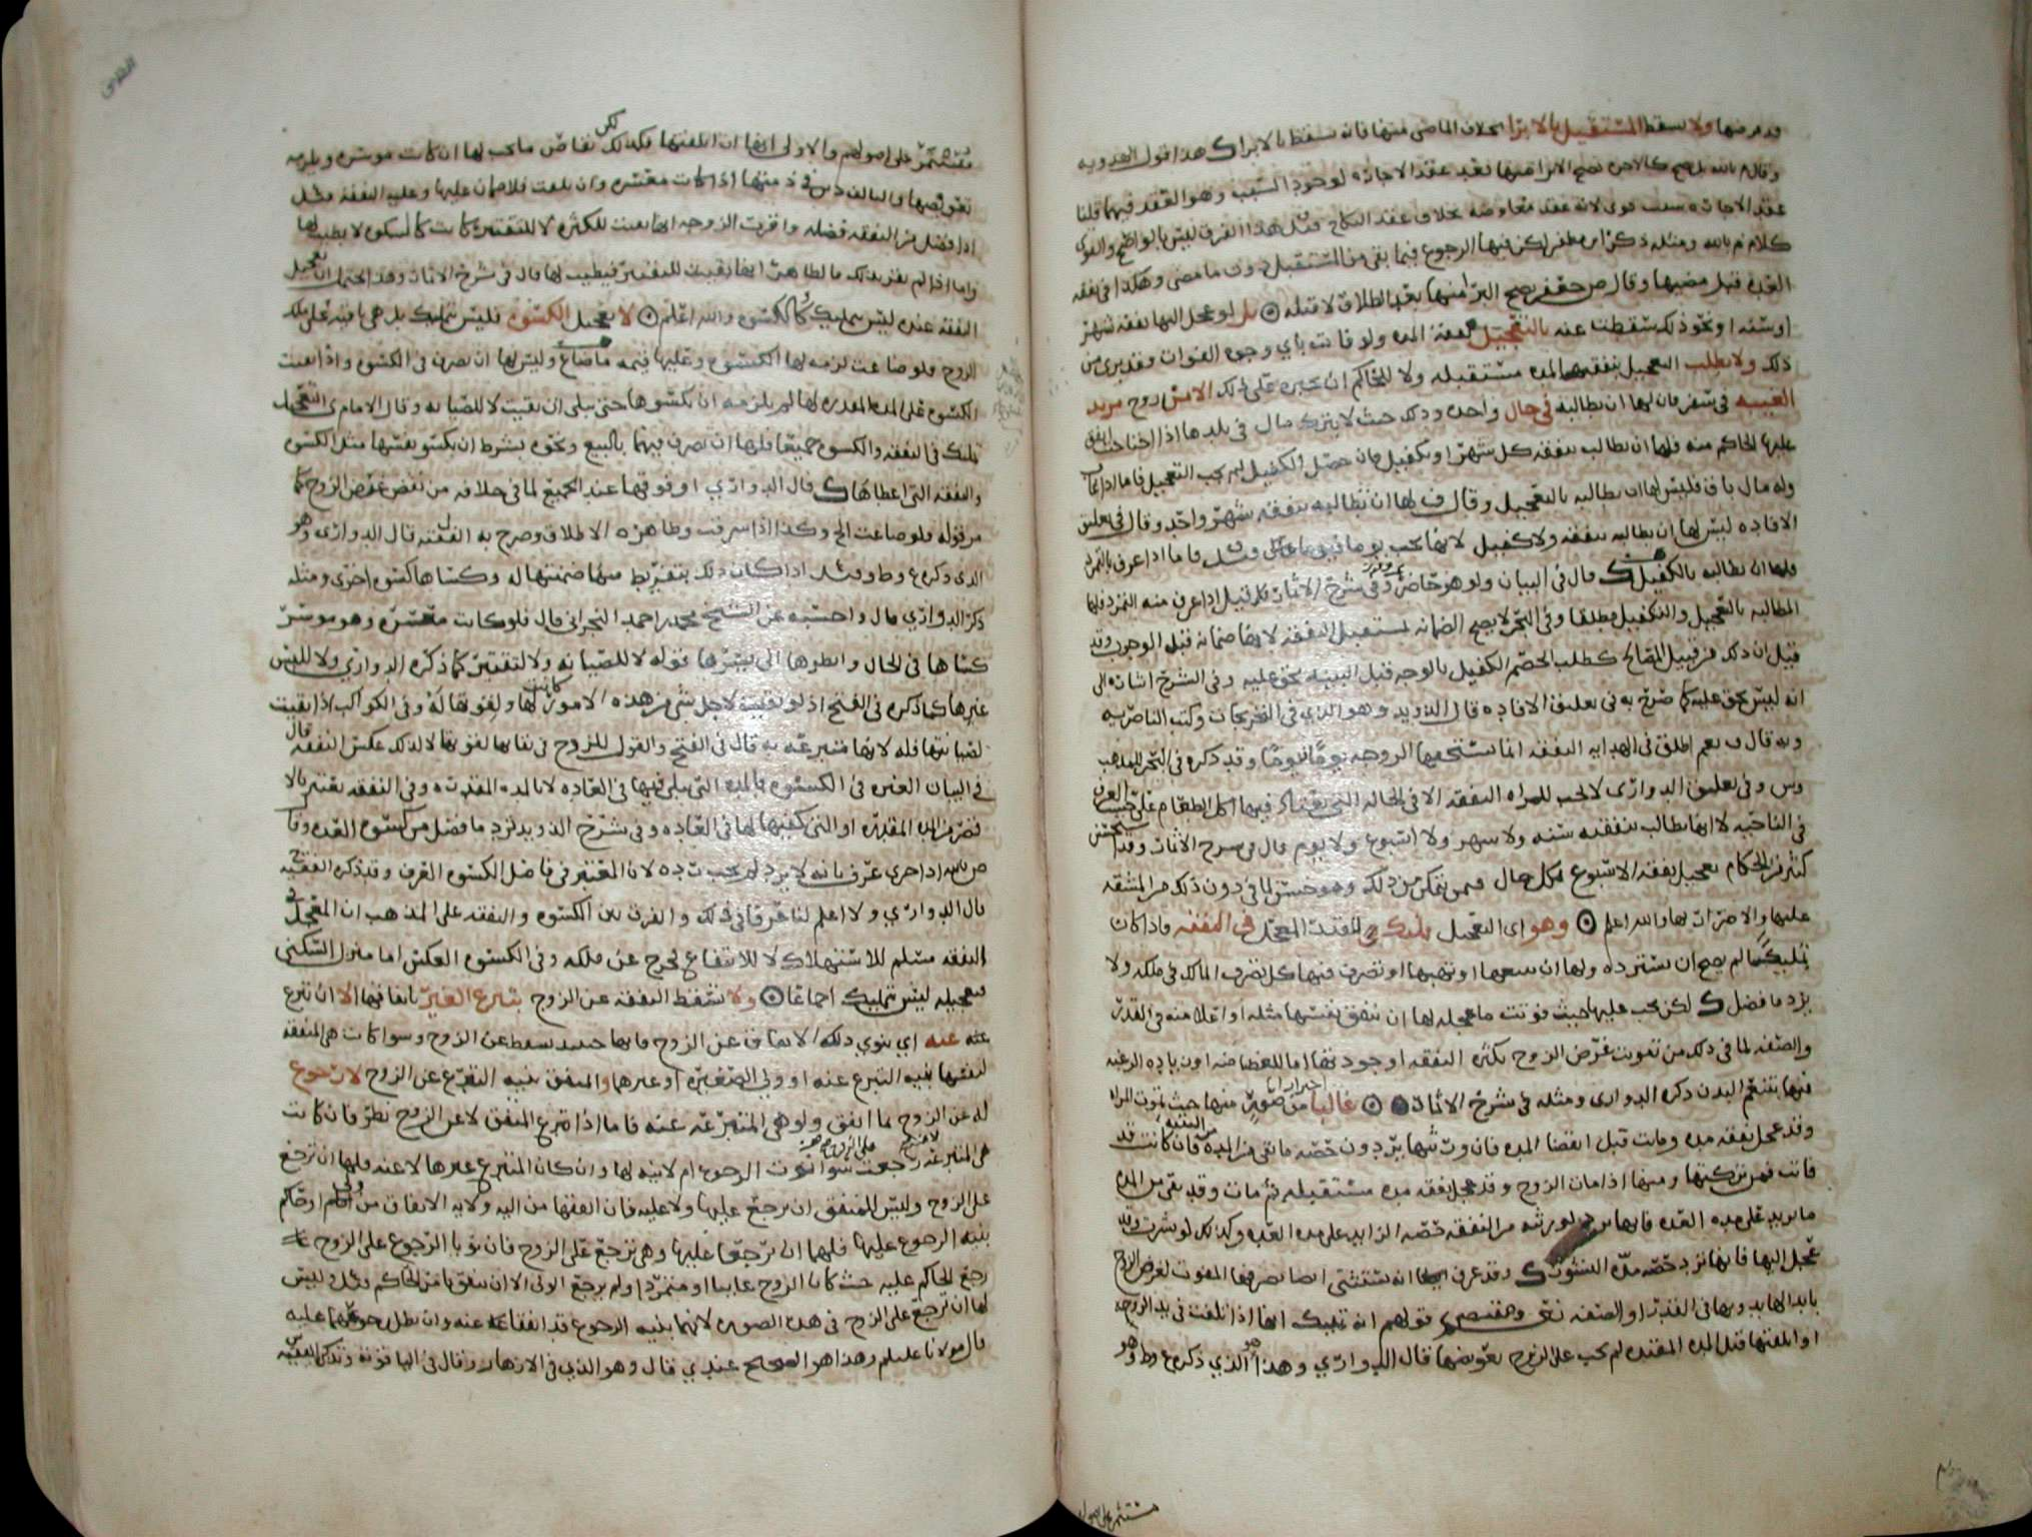 قد مر فيها ولا يسقط المستقبل بالابرا بخلاف الماضي منها فانه يسقط بالابراء هذا قول الهدويه
وقال م بالله بل يصح كالاجره تصح الابرا منها بعد عقد الاجاره لوجود السبب وهو العقد فيهما قلنا
عقد الاجاره سبب قوي لانه عقد معاوضه بخلاف عقد النكاح قيل هذا الفرق ليس بالواضح والقوي
كلام م بالله ومثله ذكر ابن مظفر لكن فيها الرجوع فيما بقي من المستقبل دون ما مضى وهكذا في نفقه
العده قبل مضيها وقال ص جعفر يصح البرا منها بعد الطلاق لا قبله بل لو عجل اليها نفقه شهر
او سنه او نحو ذلك سقطت عنه بالتعجيل نفقة المده ولو فاتت باي وجوه الفوات وقد بري من
ذلك ولا يطلب التعجيل بنفقه المده مستقبله ولا للحاكم ان يجبره على ذلك الا من زوج مريد
الغيبه في سفر فان لها ان يطالبه في حال واحده وذلك حيث لا يترك مال في بلدها اذا احتاجت انفق
عليها الحاكم منه فلها ان يطالبه بنفقه كل شهر او بكفيل فان حصل الكفيل لم يجب التعجيل فاما اذا غاب
وله مال باق فليس لها ان يطالبه بالتعجيل وقال ف لها ان تطالبه بنفقه شهر واحد وقال في تعليق
الافاده ليس لها ان يطالبه بنفقه ولا كفيل لانها تجب يوما فيوما قيل فاما اذا عرف بالتمرد
فلها ان يطالبه بالكفيل قال في البيان ولو هو حاضر وفي شرح الاثمار قد قيل اذا عرف منه التمرد فلها
المطالبه بالتعجيل والتكفيل مطلقا وفي البحر لا يصح الضمانه لمستقبل النفقه لانها ضمانه قبل الوجوب وقد
قيل ان ذلك من قبيل المصالح كطلب الخصم الكفيل بالوجه قبل البينه بحق عليه وفي الشرح اشاره الى
انه ليس بحق عليه كما صرح به في تعليق الافاده قال الذويد وهو الذي في التخريجات وكتب الناصريه
وبه قال ف نعم اطلق في الهدايه النفقه انما تستحقها الزوجه يومًا فيومًا وقد ذكره في البحر للمذهب
وس وفي تعليق الدواري لا تجب للمراه النفقه الا في الحاله التي يعتاد فيها اكل الطعام على حسب العرف
في الناحيه لا انها تطالب بنفقه سنه ولا شهر ولا اسبوع ولا يوم قال في شرح الاثمار وقد استحسن
كثير من الحكام تعجيل نفقه الاسبوع لكل حال فمن يتمكن من ذلك وهو حسن لما في دون ذلك من المشقه
عليها والاضرار بها والله اعلم وهو اى التعجيل تمليك للقدر المعجل في النفقه فاذا كان
تمليكًا لم يصح ان يسترده ولها ان تبيعها او تهبها او تتصرف فيها كل تصرف المالك في ملكه ولا
يرد ما فضل لكن يجب عليها حيث فوتت ما عجله لها ان تنفق نفسها مثله او اعلا منه في القدر
والصفه لما في ذلك من تفويت غرض الزوج بكثره النفقه او جودتها اما للغضاضه او زياده الرغبه
فيها بتنعم البدن ذكره الدوارى ومثله في شرح الاثمار غالبا احترازا من صورتين منها حيث تموت المراه
وقد عجل نفقه مده وماتت قبل انقضا المده فان ورثتها يردون حصه ما بقي من المده فان كانت قد
فاتت فمن تركتها ومنها اذا مات الزوج وقد عجل نفقه مده مستقبله ثم مات وقد بقي من المده
ما يزيد على مده العده فانها ترد لورثته من النفقه حصه الزايد على مده العده وكذلك لو نشزت وقد
عجل اليها فانها ترد حصه مدة النشوز وقد عرف ايضا انه يستثنى ايضا تصرفها المفوت لغرض الزوج
بابدالها بدونها في القدر او الصفه نعم ومقتضى قولهم انه تمليك انها اذا تلفت في يد الزوجه
او اتلفتها قبل المده المقدره لم يجب على الزوج تعويضها قال الدواري وهذا هو الذي ذكره ع وط وهو
مستمر على اصولهم
الطلاق
مستمر على اصولهم والاولى انها ان اتلفتها فكذلك لكن تقاص ما يجب لها ان كانت موسره ويلزمه
تعويضها والتالف دين في ذمتها اذا كانت معسره وان تلفت فلا ضمان عليها وعليه النفقه مثل
اذا فضل من النفقه فضله واقرت الزوجه انها بقيت للكثره لا للتقتير كانت كالكسوه لا يطيب لها
واما اذا لم تقر بذلك فالظاهر انها بقيت للتقتير فيطيب لها قال في شرح الاثمار وهذا يحتمل ان تعجيل
النفقه عنده ليس تمليك كالكسوه والله اعلم لا تعجيل الكسوه فليس تمليك بل هي باقيه على ملك
الزوج فلو ضاعت لزمه لها الكسوه وعليها قيمه ما ضاع وليس لها ان تصرف في الكسوه واذا بقيت
الكسوه على المده المقدره لها لم يلزمه ان يكسوها حتى تبلى ان بقيت لا للصيانه وقال الامام ى التعجيل
تمليك في النفقه والكسوه جميعا فلها ان تصرف فيهما بالبيع ونحوه بشرط ان تكسو نفسها مثل الكسوه
والنفقه التي اعطاها قال الدواري او فوقهما عند الجميع لما في خلافه من نقض غرض الزوج كما
مر قوله فلو ضاعت الخ وكذا اذا سرقت وظاهره الاطلاق وصرح به الفقيه قال الدوارى وهو
الذي ذكره ع وط وقيل اذا كان ذلك بتفريط منها ضمنتها له وكساها كسوه اخرى ومثله
ذكر الدواري قال واحسبه عن الشيخ محمد بن احمد النجراني قال فلو كانت معسره وهو موسر
كساها في الحال وانظرها الى يسرها قوله لا للصيانه ولا لتقتير كما ذكره الدواري ولا للبس
غيرها كما ذكره في الفتح اذ لو بقيت لاجل شي من هذه الامور كانت لها ولفوتها له وفي الكواكب اذا بقيت
لصيانتها فله لانها متبرعه به قال في الفتح والقول للزوج في بقايها لفوتها لا لذلك عكس النفقه قال
في البيان العبره في الكسوه بالمده التي تبلى فيها في العاده لا بالمده المقدره وفي النفقه يعتبر بالا
قصر من المده المقدره او التي تكفيها لها في العاده وفي شرح الذويد لا ترد ما فضل من كسوه العده وقا
ص بالله اذا جرى عرف بانه لا يرد لم يجب رده لان المعتبر في فاضل الكسوه العرف وقد ذكره الفقيه ح
قال الدواري ولا اعلم لنا فرقا في ذلك والفرق بين الكسوه والنفقه على المذهب ان المعجل في
النفقه مسلم للاستهلاك لا للانتفاع يخرج عن ملكه وفي الكسوه العكس اما منزل السكنى
فتعجيله ليس تمليك اجماعًا ولا تسقط النفقه عن الزوج بتبرع الغير بانفاقها الا ان تبرع
عنه عنه اي ينوي ذلك الانفاق عن الزوج فانها حينيذ تسقط عن الزوج وسوا كانت هي المنفقه
لنفسها بنيه التبرع عنه او ولي الصغيره او غيرهما والمنفق بنيه التبرع عن الزوج لا رجوع
له عن الزوج بما انفق ولو هي المتبرعه عنه فاما اذا تبرع المنفق لا عن الزوج نظر فان كانت
هي المتبرعه رجعت على الزوج سوا نوت الرجوع ام لا نيه لها وان كان المتبرع غيرها لا عنه فلها ان ترجع
على الزوج وليس للمنفق ان يرجع عليها ولا عليه فان انفقها من اليه ولايه الانفاق من ولي او حاكم
بنيه الرجوع عليها فلهما ان يرجعا عليها وهي ترجع على الزوج فان نويا الرجوع على الزوج
رجع الحاكم عليه حيث كان الزوج غايبا او متمردا ولم يرجع الولي الا ان ينفق بامر الحاكم وقيل وليس
لها ان ترجع على الزوج في هذه الصوره لانهما بنيه الرجوع قد انفقا عنه وان بطل رجوعهما عليه
قال مولانا عليلم وهذا هو الصحيح عندي قال وهو الذي في الازهار وقال في الياقوته وتذكره الفقيه